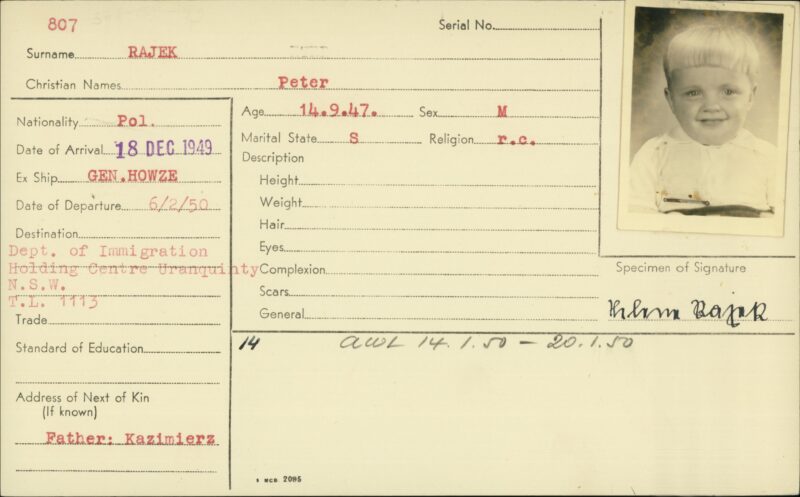 807
Serial No.
Surname RAJEK
Christian Names Peter
Nationality Pol.
Date of Arrival 18 DEC 1949
Ex Ship GEN.HOWZE
Date of Departure 6/2/50
Destination
Dept. of Immigration
Holding Centre Uranquinty
N.S.W.
T.L. 1113
Trade
Standard of Education
Address of Next of Kin
(If known)
Father: Kazimierz
Age 14.9.47. Sex M
Marital State S Religion r.c.
Description
Height
Weight
Hair
Eyes
Complexion
Scars
General
Specimen of Signature
Helena Rajek
14 AWL 14.1.50 – 20.1.50
MCB 2095